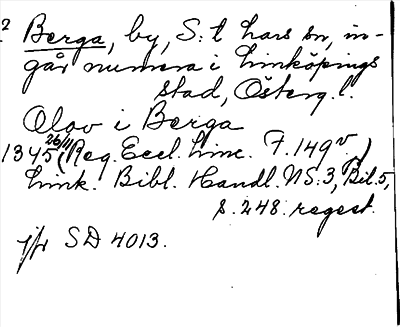 2 Berga, by, S:t Lars sn, in-
går numera i Linköpings
stad, Österg.l.
Olav i Berga
1345 26/11 (Reg. Eccl. Linc. F. 149v.)
Link. Bibl. Handl. NS. 3, Bil. 5,
s. 248. regest.
jfr SD 4013.